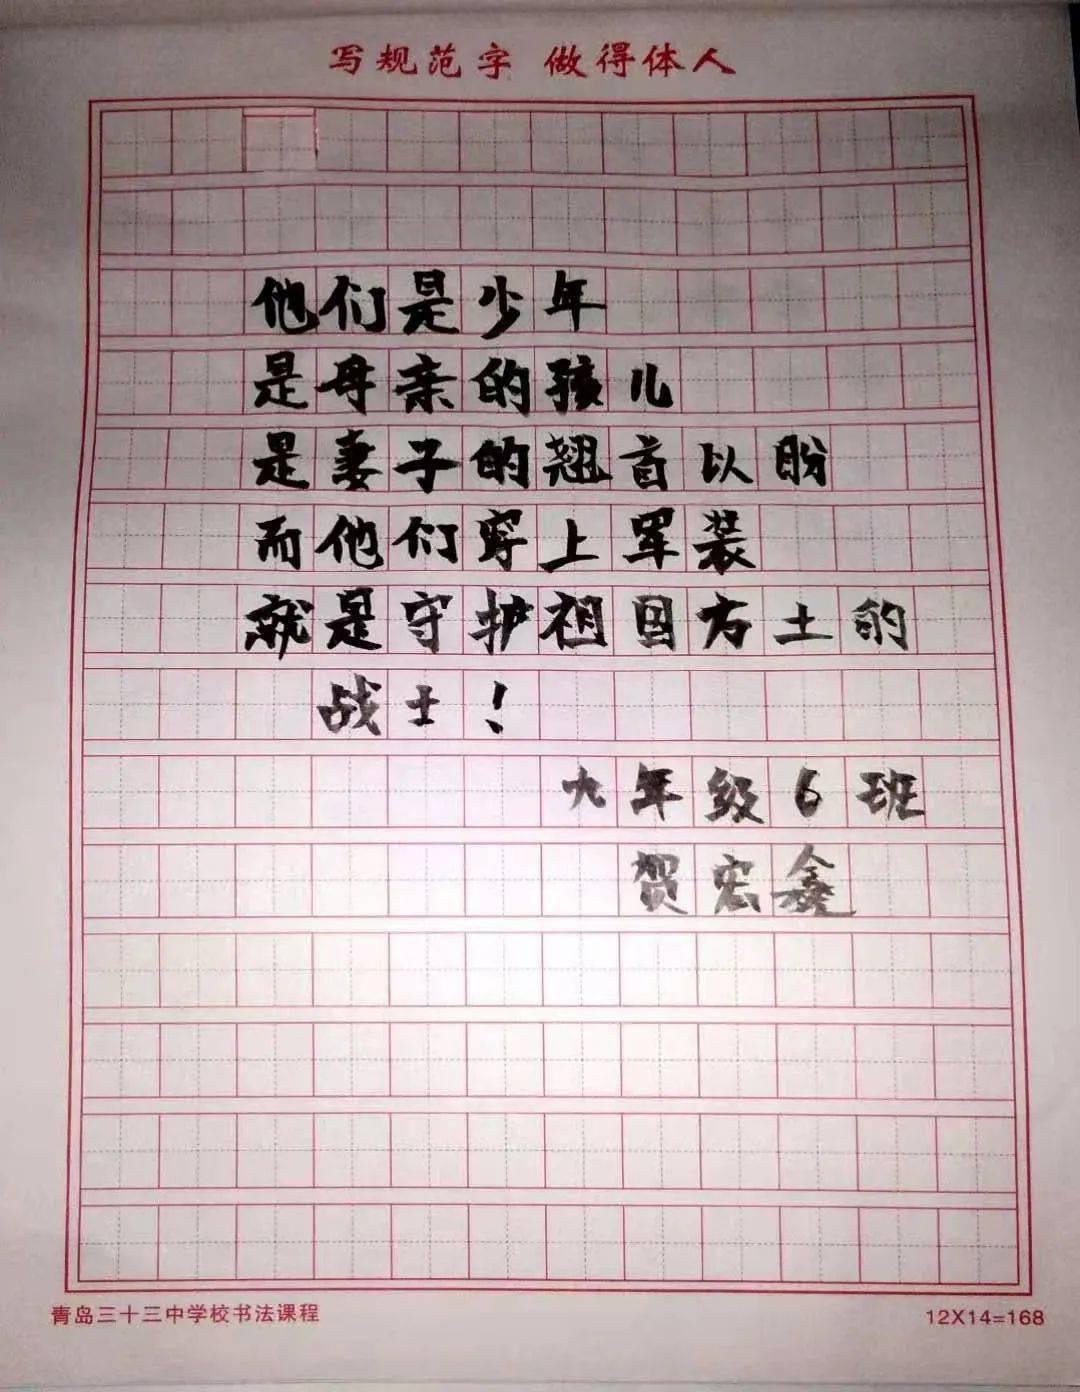 写规范字 做得体人
他们是少年
是母亲的孩儿
是妻子的翘首以盼
而他们穿上军装
就是守护祖国方土的
战士！
九年级6班
贺宏鑫
青岛三十三中学校书法课程
12X14=168